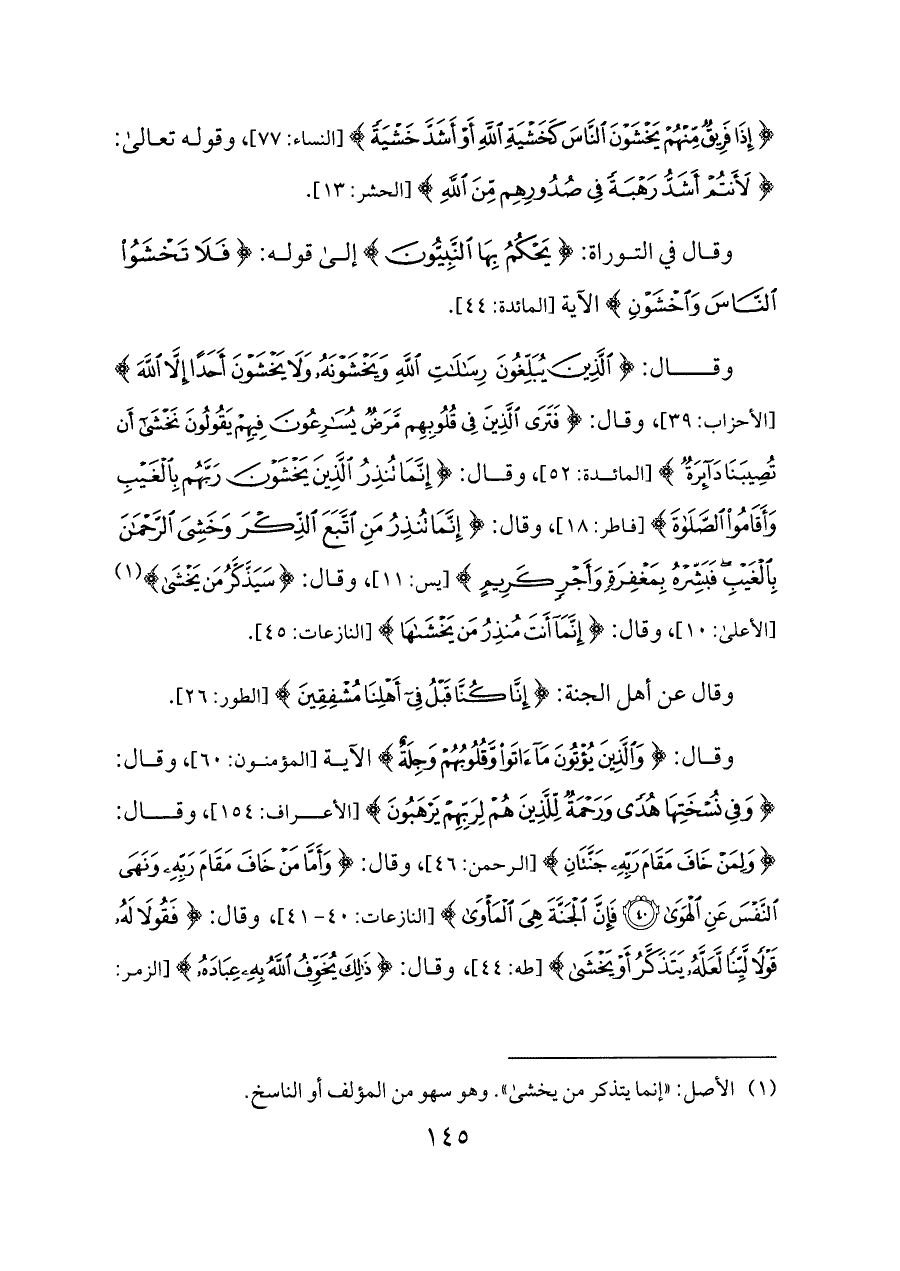 ﴿ إِذَا فَرِيقٌ مِّنْهُمْ يَخْشَوْنَ ٱلنَّاسَ كَخَشْيَةِ ٱللَّهِ أَوْ أَشَدَّ خَشْيَةً ﴾ [النساء: ٧٧]، وقوله تعالىٰ:
﴿ لَأَنتُمْ أَشَدُّ رَهْبَةً فِى صُدُورِهِم مِّنَ ٱللَّهِ ﴾ [الحشر: ١٣].
وقال في التوراة: ﴿ يَحْكُمُ بِهَا ٱلنَّبِيُّونَ ﴾ إلىٰ قوله: ﴿ فَلَا تَخْشَوُا۟
ٱلنَّاسَ وَٱخْشَوْنِ ﴾ الآية [المائدة: ٤٤].
وقال: ﴿ ٱلَّذِينَ يُبَلِّغُونَ رِسَٰلَٰتِ ٱللَّهِ وَيَخْشَوْنَهُۥ وَلَا يَخْشَوْنَ أَحَدًا إِلَّا ٱللَّهَ ﴾
[الأحزاب: ٣٩]، وقال: ﴿ فَتَرَى ٱلَّذِينَ فِى قُلُوبِهِم مَّرَضٌ يُسَٰرِعُونَ فِيهِمْ يَقُولُونَ نَخْشَىٰٓ أَن
تُصِيبَنَا دَآئِرَةٌ ﴾ [المائدة: ٥٢]، وقال: ﴿ إِنَّمَا تُنذِرُ ٱلَّذِينَ يَخْشَوْنَ رَبَّهُم بِٱلْغَيْبِ
وَأَقَامُوا۟ ٱلصَّلَوٰةَ ﴾ [فاطر: ١٨]، وقال: ﴿ إِنَّمَا تُنذِرُ مَنِ ٱتَّبَعَ ٱلذِّكْرَ وَخَشِىَ ٱلرَّحْمَٰنَ
بِٱلْغَيْبِ ۖ فَبَشِّرْهُ بِمَغْفِرَةٍ وَأَجْرٍ كَرِيمٍ ﴾ [يس: ١١]، وقال: ﴿ سَيَذَّكَّرُ مَن يَخْشَىٰ ﴾(١)
[الأعلىٰ: ١٠]، وقال: ﴿ إِنَّمَآ أَنتَ مُنذِرُ مَن يَخْشَىٰهَا ﴾ [النازعات: ٤٥].
وقال عن أهل الجنة: ﴿ إِنَّا كُنَّا قَبْلُ فِىٓ أَهْلِنَا مُشْفِقِينَ ﴾ [الطور: ٢٦].
وقال: ﴿ وَٱلَّذِينَ يُؤْتُونَ مَآ ءَاتَوا۟ وَّقُلُوبُهُمْ وَجِلَةٌ ﴾ الآية [المؤمنون: ٦٠]، وقال:
﴿ وَفِى نُسْخَتِهَا هُدًى وَرَحْمَةٌ لِّلَّذِينَ هُمْ لِرَبِّهِمْ يَرْهَبُونَ ﴾ [الأعراف: ١٥٤]، وقال:
﴿ وَلِمَنْ خَافَ مَقَامَ رَبِّهِۦ جَنَّتَانِ ﴾ [الرحمن: ٤٦]، وقال: ﴿ وَأَمَّا مَنْ خَافَ مَقَامَ رَبِّهِۦ وَنَهَى
ٱلنَّفْسَ عَنِ ٱلْهَوَىٰ ۝٤٠ فَإِنَّ ٱلْجَنَّةَ هِىَ ٱلْمَأْوَىٰ ﴾ [النازعات: ٤٠-٤١]، وقال: ﴿ فَقُولَا لَهُۥ
قَوْلًا لَّيِّنًا لَّعَلَّهُۥ يَتَذَكَّرُ أَوْ يَخْشَىٰ ﴾ [طه: ٤٤]، وقال: ﴿ ذَٰلِكَ يُخَوِّفُ ٱللَّهُ بِهِۦ عِبَادَهُۥ ﴾ [الزمر:
(١) الأصل: «إنما يتذكر من يخشىٰ». وهو سهو من المؤلف أو الناسخ.
١٤٥